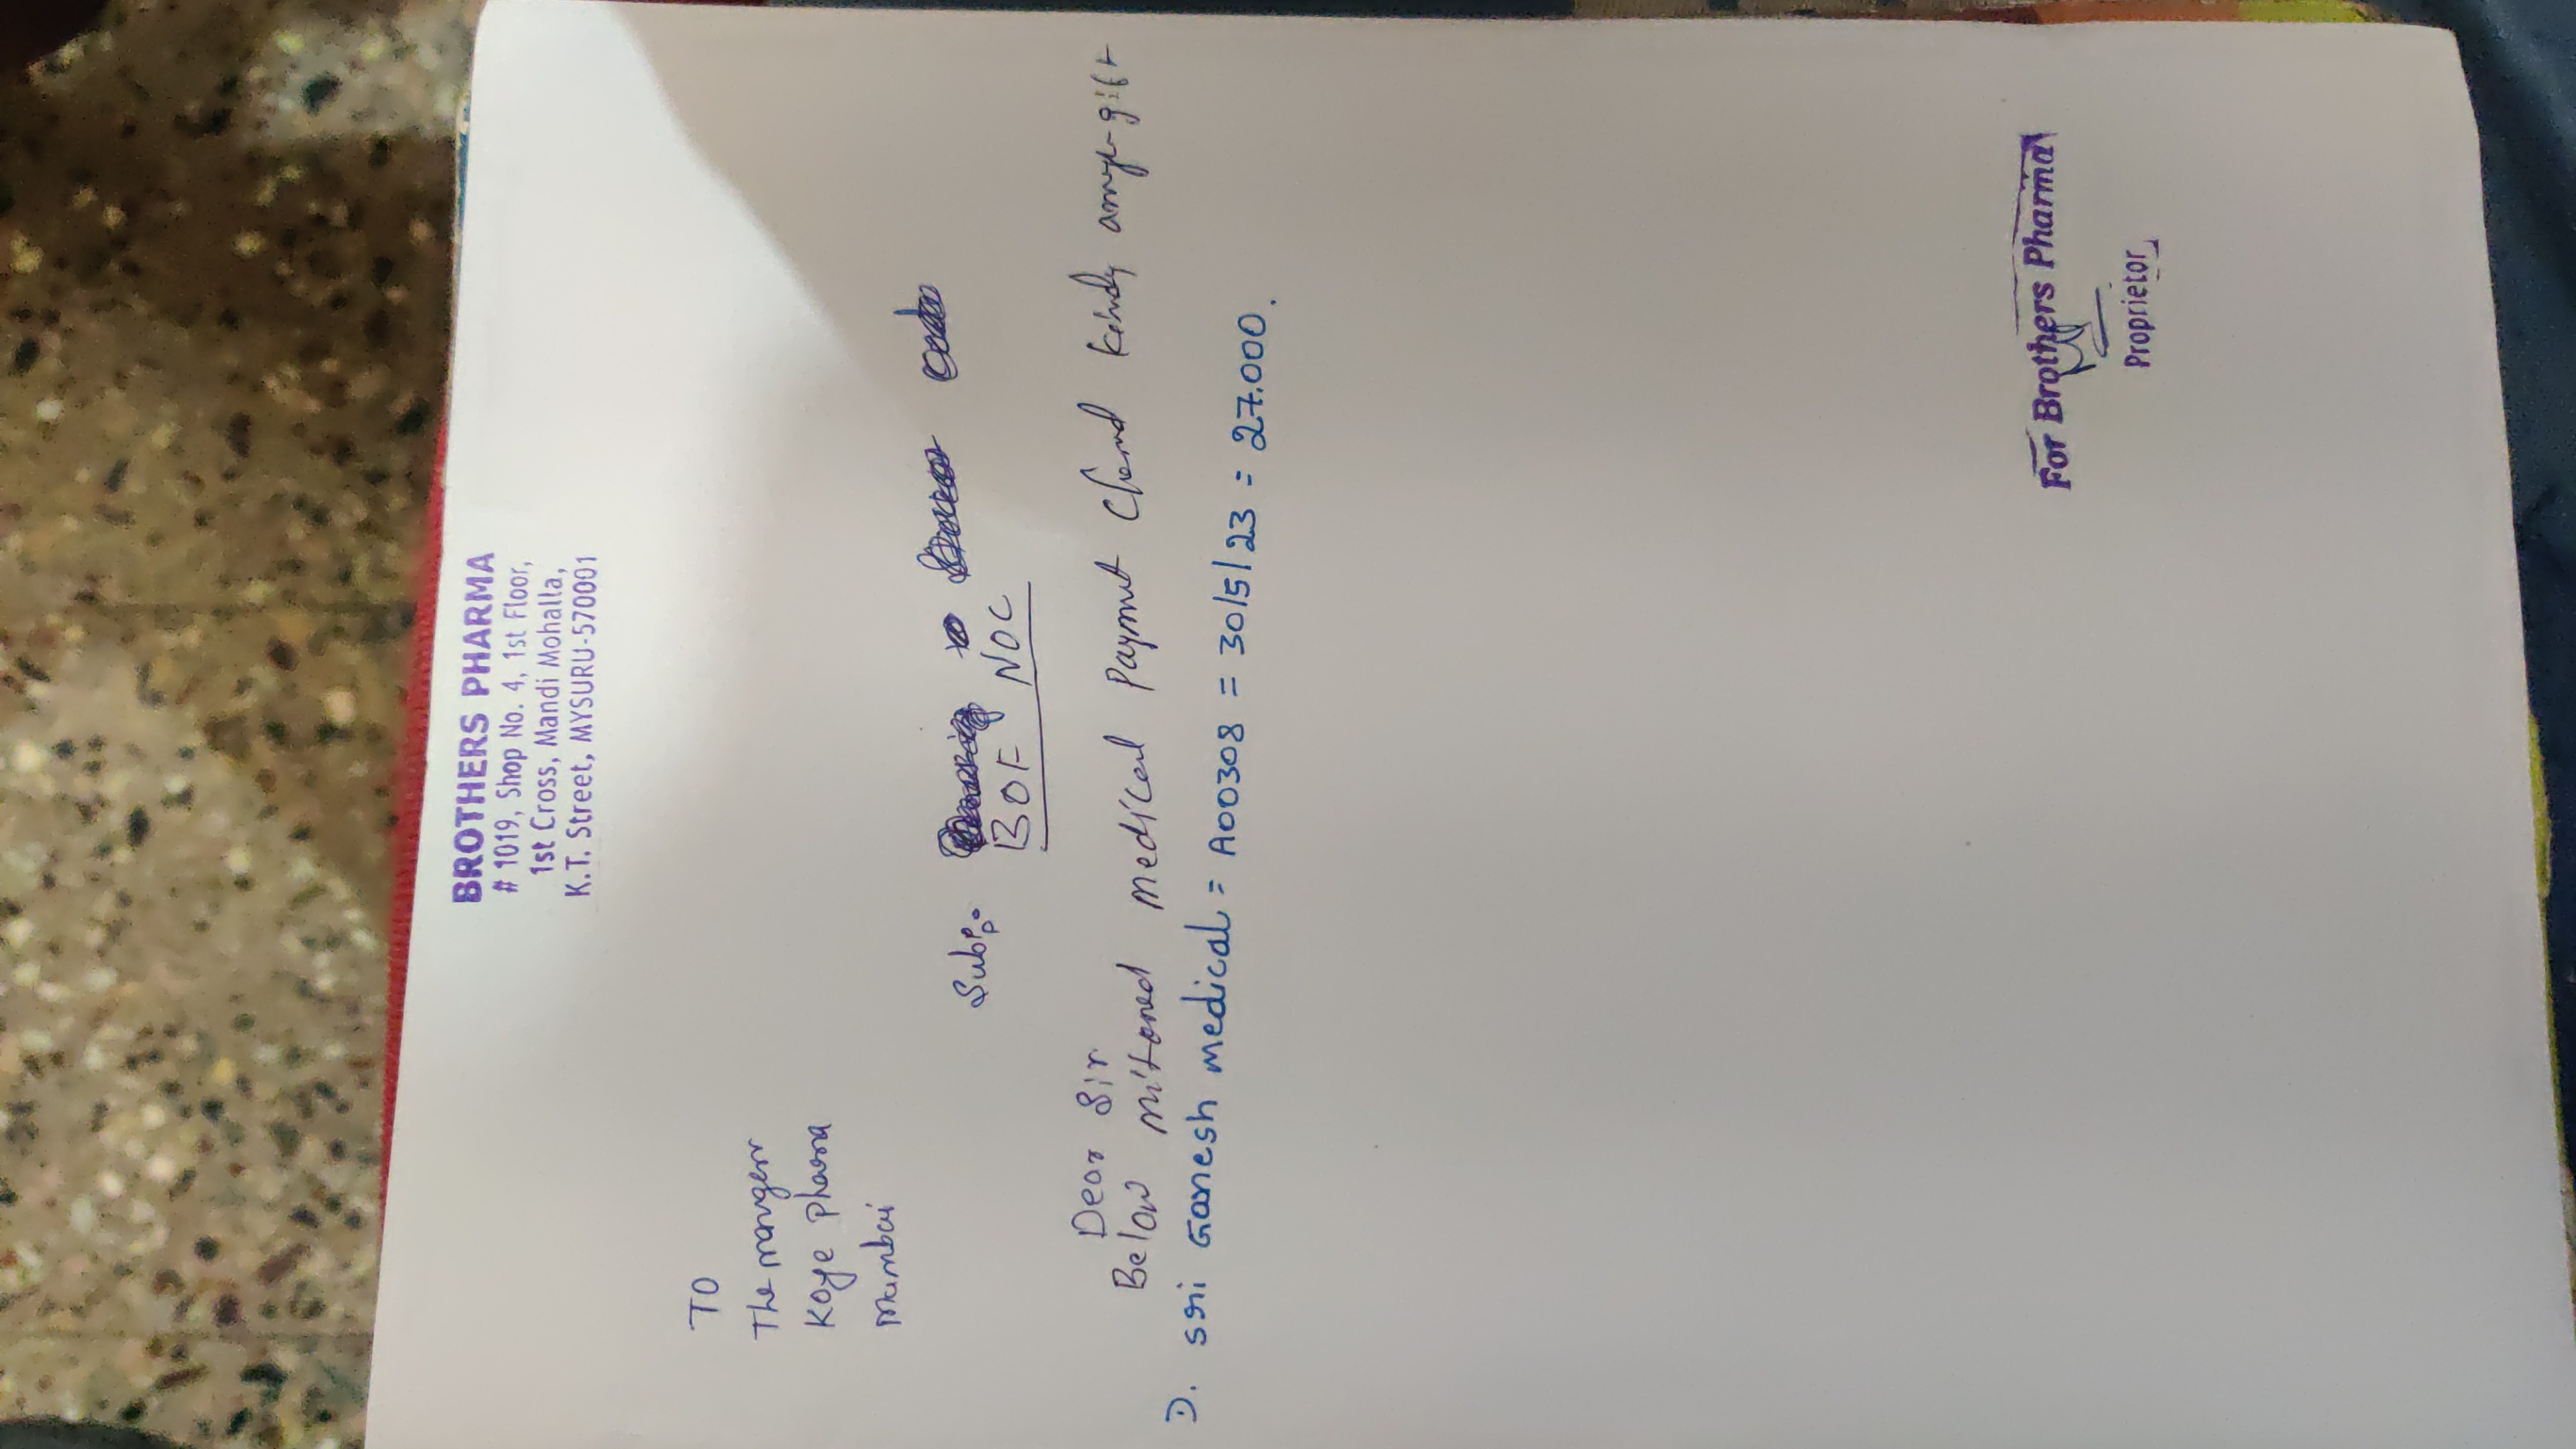 BROTHERS PHARMA
# 1019, Shop No. 4, 1st Floor,
1st Cross, Mandi Mohalla,
K.T. Street, MYSURU-570001
TO
The manger
Koye Pharma
Mumbai
Sub:
BOF NOC
Dear Sir
Below mitoned medical Paymut Cleard kindly gift
1). Sri Ganesh medical = A00308 = 30/5/23 = 27.000.
For Brothers Pharma
Proprietor